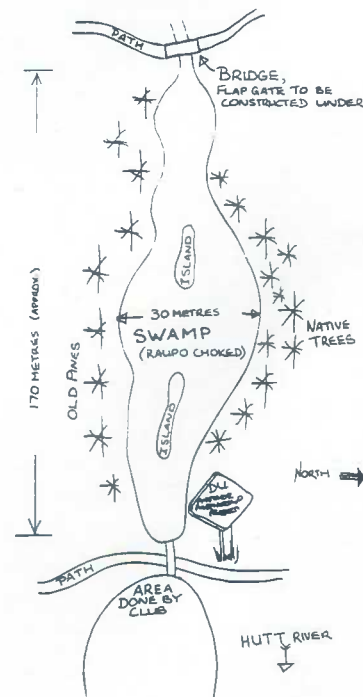 PATH
BRIDGE,
FLAP GATE TO BE
CONSTRUCTED UNDER
170 METRES (APPROX.)
OLD PINES
ISLAND
30 METRES
SWAMP
(RAUPO CHOKED)
NATIVE
TREES
ISLAND
NORTH
DU
PATH
AREA
DONE BY
CLUB
HUTT RIVER